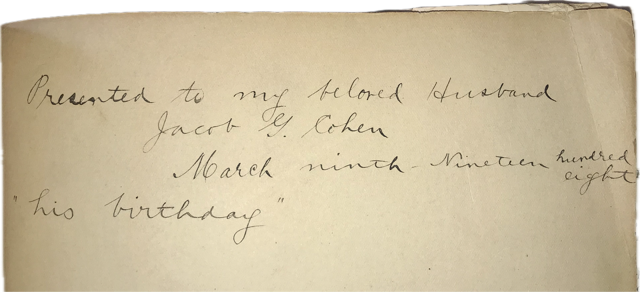 Presented to my beloved Husband
Jacob G. Cohen
March ninth - Nineteen hundred
eight
"his birthday"